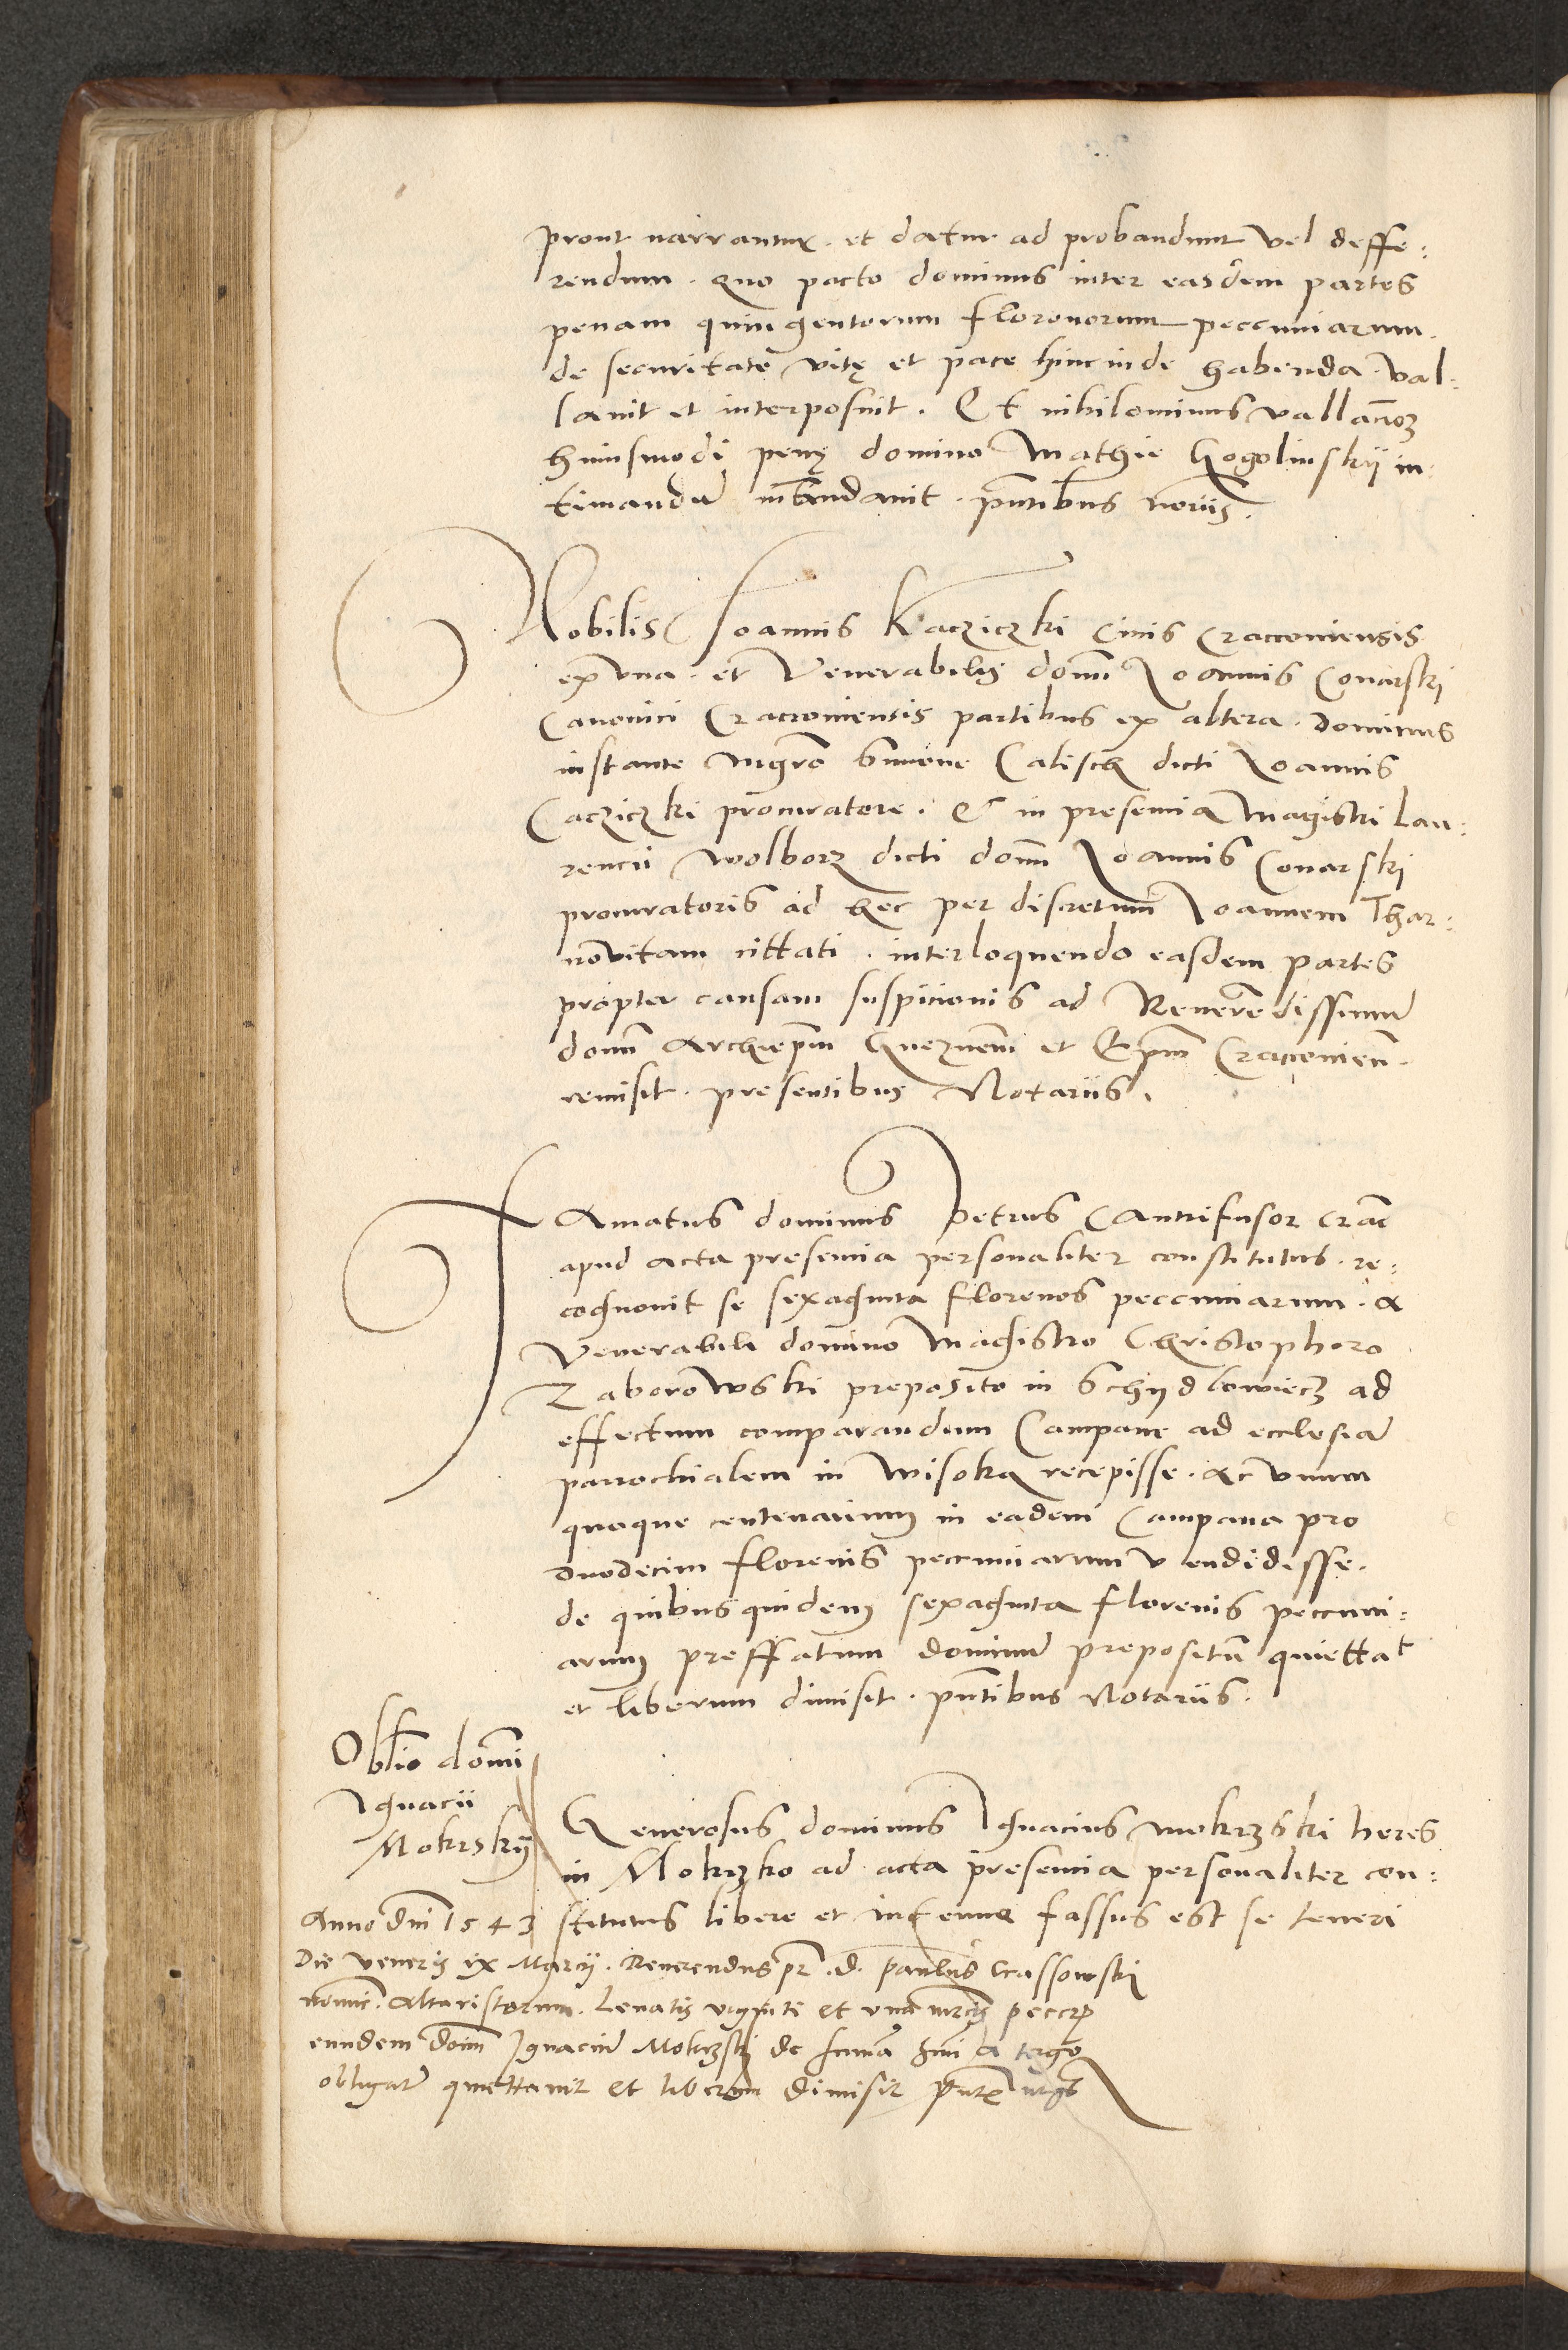 prout narrantur. et datur ad probandum vel deffe:
rendum. Quo pacto dominus inter easdem partes
penam quingentorum florenorum peccuniarum.
de securitate vitę et pace hincinde habenda. val:
lavit et interposuit. Et nihilominus vallacõẽ
huiusmodi penę domino Mathie Gogolinskij in:
timandũ mãndavit. pñtibus noriis.
Nobilis Joannis Kacziczki Civis Cracoviensis
ex vna. et Venerabilis domi Joannis Conarski
Canonici Cracoviensis partibus ex altera. Dominus
instante mgrõ Simone Calisch dicti Joannis
Cacziczki procuratore. Et in presencia Magistri Lau:
rencii Wolborz dicti domi Joannis Conarski
procuratoris ad hec per discretum Joannem Thar:
novitam cittati. interloquendo easdem partes
propter causam suspicionis ad Reverendissimũ
domi Archiepm̃ Gneznem̃ et Epm̃ Cracovien̄.
remisit. presentibus Notariis.
Famatus dominus Petrus Cantrifusor crac̃
apud acta presencia personaliter constitutus. re:
cognovit se sexaginta florenos peccuniarum. a
Venerabili domino Magistro Christophoro
Zaborowski preposito in Schydlowiecz ad
effectum comparandum Campane ad ecclesiã
parrochialem in Wisoka recepisse. ac vnum
quoque centenarium in eadem Campana pro
duodecim florenis peccuniarum vendidesse.
de quibusquidem sexaginta florenis peccuni:
arum preffatum dominũ prepositũ quiettat
et liberum dimisit. pñtibus Notariis.
Oblio domi
Ignacii
Mokrskij
Generosus dominus Ignacius Mokrzski heres
in Mokrzko ad acta presencia personaliter con:
stitutus libere et intenue fassus est se teneri
Anno dñi 1543
Die veneris ix Marcij. Reverendus pr. d. Paulus Crassowski
nomie. Altaristarum. Levatis viginti et una mrcis pecc
eundem doim Ignaciũ Mokrzskj de summa a tergo
obligatũ quiettavit et liberum dimisit